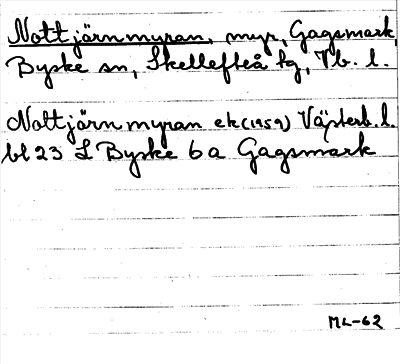 Nottjärnmyran, myr, Gagsmark,
Byske sn, Skellefteå tg, Vb. l.
Nottjärnmyran ek(1959) Västerb. l.
bl 23 L Byske 6a Gagsmark
ML-62